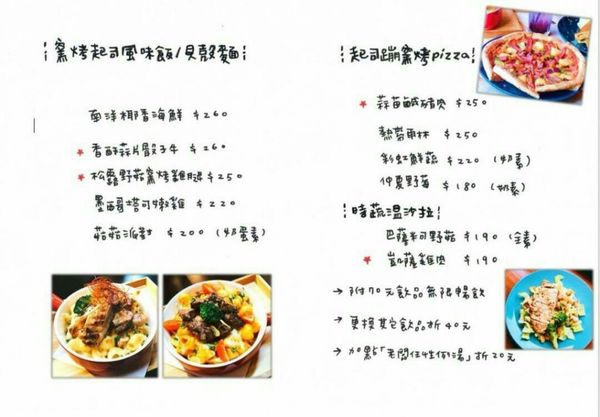 窯烤起司風味飯/貝殼麵
南洋椰香海鮮 $260
★ 香酥蒜片骰子牛 $260
★ 松露野菇窯烤雞腿 $250
墨西哥塔可嫩雞 $220
菇菇派對 $200 (奶蛋素)
起司蹦窯烤pizza
★ 蒜苗鹹豬肉 $250
熱帶雨林 $250
彩虹鮮蔬 $220 (奶素)
仲夏野莓 $180 (奶素)
時蔬溫沙拉
巴薩米可野菇 $190 (全素)
★ 凱薩雞肉 $190
→ 附70元飲品無限暢飲
→ 更換其它飲品折40元
→ 加點「老闆任性例湯」折20元